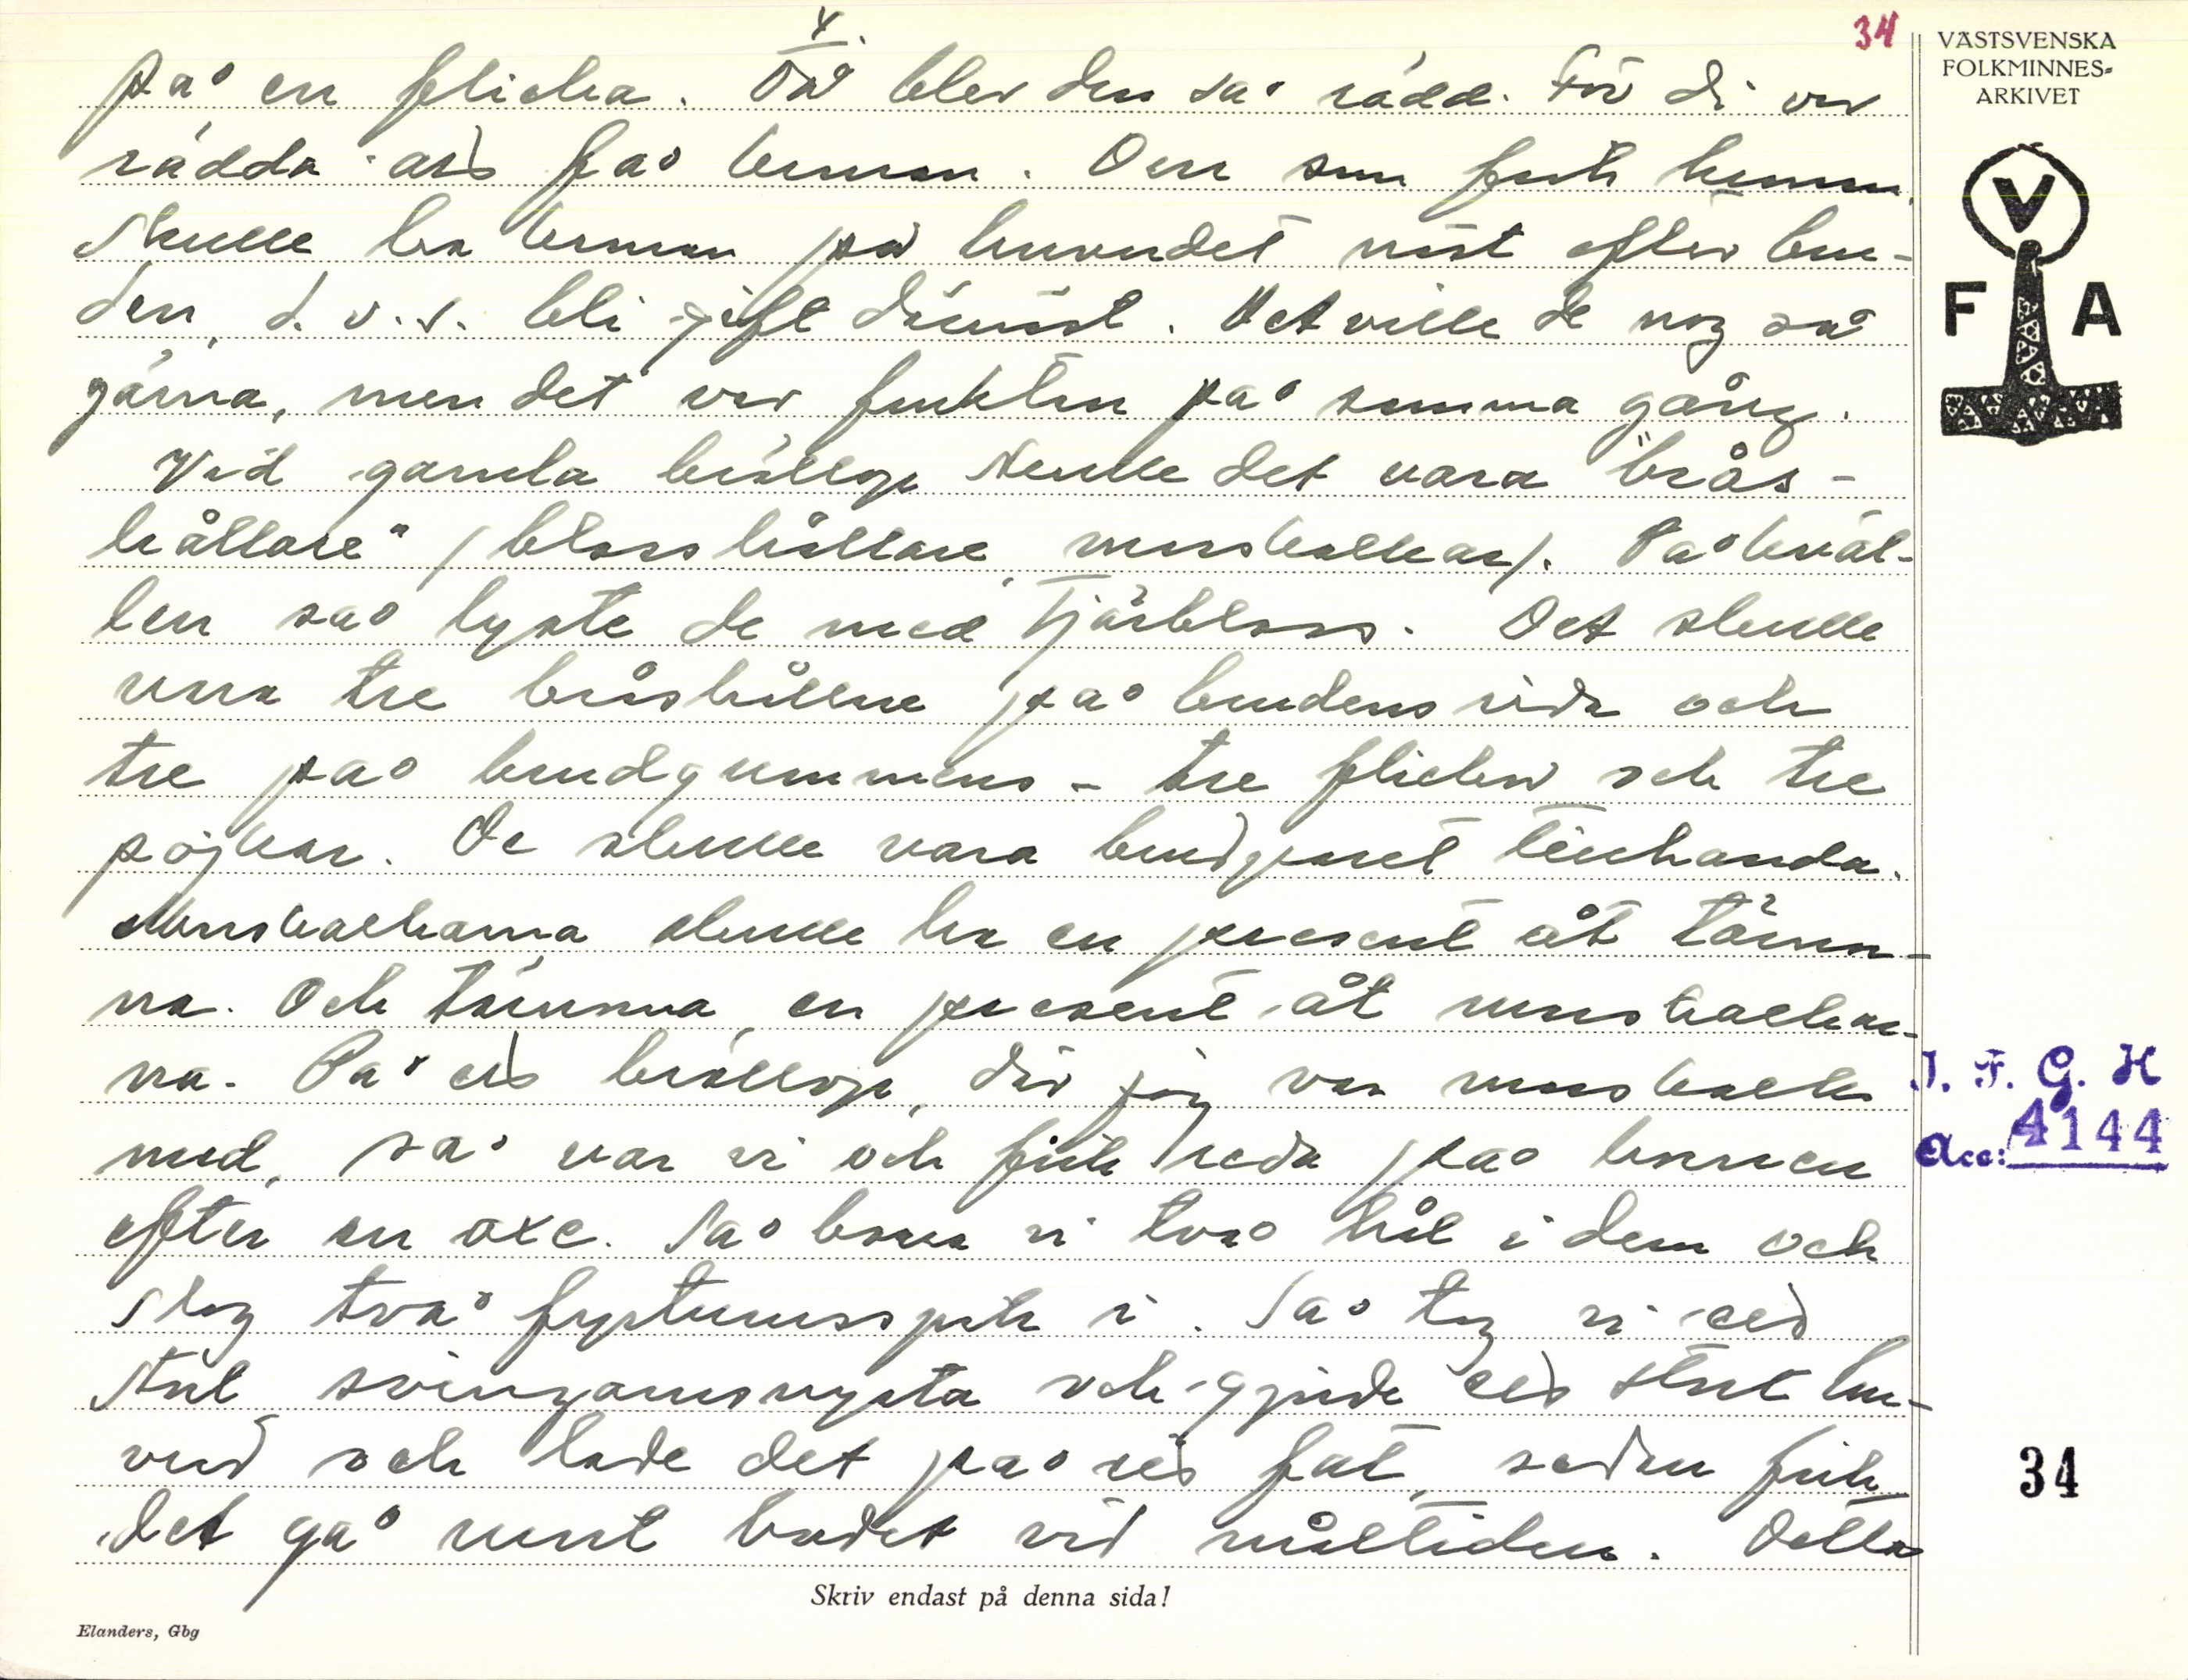 34
på en flicka. Då blev den så rädd. För di var
rädda att få kronan. Den som fick kronan
skulle ha kronan på huvudet näst efter bru-
den, d.v.s. bli gift därnäst. Det ville de nog så
gärna, men det var fruktan på samma gång.
Vid gamla bröllop skulle det vara "brås-
hållare" (blosshållare, marskalkar). På kväl-
len så lyste de med tjärbloss. Det skulle
vara tre bråshållare på brudens sida och
tre på brudgummens - tre flickor och tre
pojkar. De skulle vara brudparet tillhanda.
Marskalkarna skulle ha en present åt tärnor-
na. Och tärnorna en present åt marskalkar-
na. På ett bröllop, där jag var marskalk
med, så var vi och fick reda på
efter en oxe. Så borra vi två hål i dem och
slog två fyrtumsspik i. Så tog vi ett
och gjorde ett stort hu-
vud och lade det på ett fat, sedan fick
det gå runt bordet vid måltiden. Detta
Skriv endast på denna sida!
Elanders, Gbg
VÄSTSVENSKA
FOLKMINNES-
ARKIVET
V
F A
I. F. G. H
Acc: 4144
34